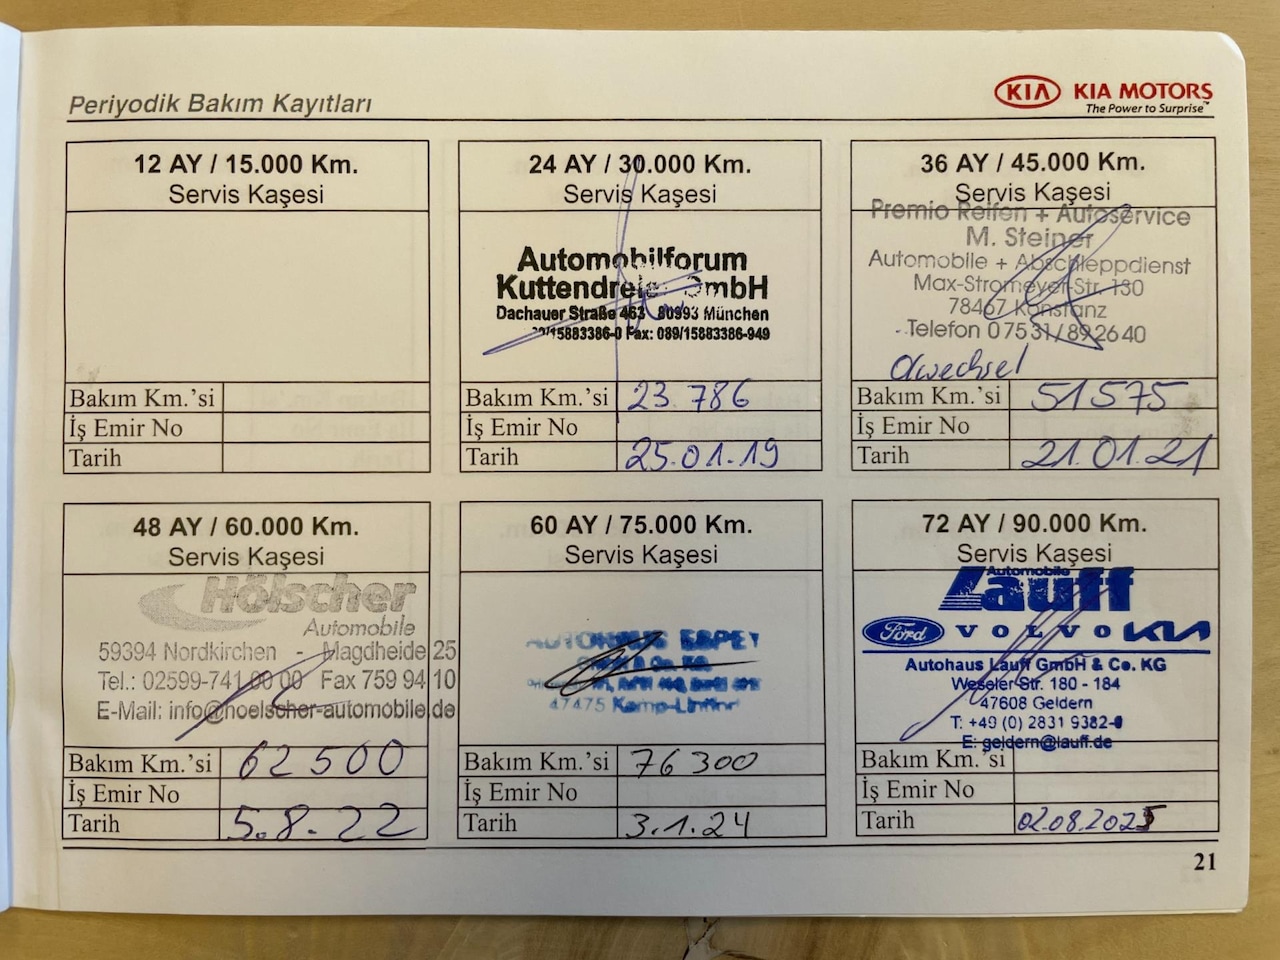 Periyodik Bakım Kayıtları
KIA KIA MOTORS
The Power to Surprise™
12 AY / 15.000 Km.
Servis Kaşesi
Bakım Km.'si
İş Emir No
Tarih
24 AY / 30.000 Km.
Servis Kaşesi
Automobilforum
Kuttendreier GmbH
Dachauer Straße 463 80993 München
/15883386-0 Fax: 089/15883386-949
Bakım Km.'si 23.786
İş Emir No
Tarih 25.01.19
36 AY / 45.000 Km.
Servis Kaşesi
Premio Reifen + Autoservice
M. Steiner
Automobile + Abschleppdienst
Max-Stromeyer-Str. 130
78467 Konstanz
Telefon 07531/892640
Ölwechsel
Bakım Km.'si 51575
İş Emir No
Tarih 21.01.21
48 AY / 60.000 Km.
Servis Kaşesi
Hölscher
Automobile
59394 Nordkirchen - Magdheide 25
Tel.: 02599-741 00 00 Fax 759 94 10
E-Mail: info@hoelscher-automobile.de
Bakım Km.'si 62500
İş Emir No
Tarih 5.8.22
60 AY / 75.000 Km.
Servis Kaşesi
AUTOHAUS
& Co. KG
47475 Kamp-Lintfort
Bakım Km.'si 76300
İş Emir No
Tarih 3.1.24
72 AY / 90.000 Km.
Servis Kaşesi
Automobile
Lauff
Ford VOLVO KIA
Autohaus Lauff GmbH & Co. KG
Weseler Str. 180 - 184
47608 Geldern
T: +49 (0) 2831 9382-0
E: geldern@lauff.de
Bakım Km.'si
İş Emir No
Tarih 02.08.2025
21